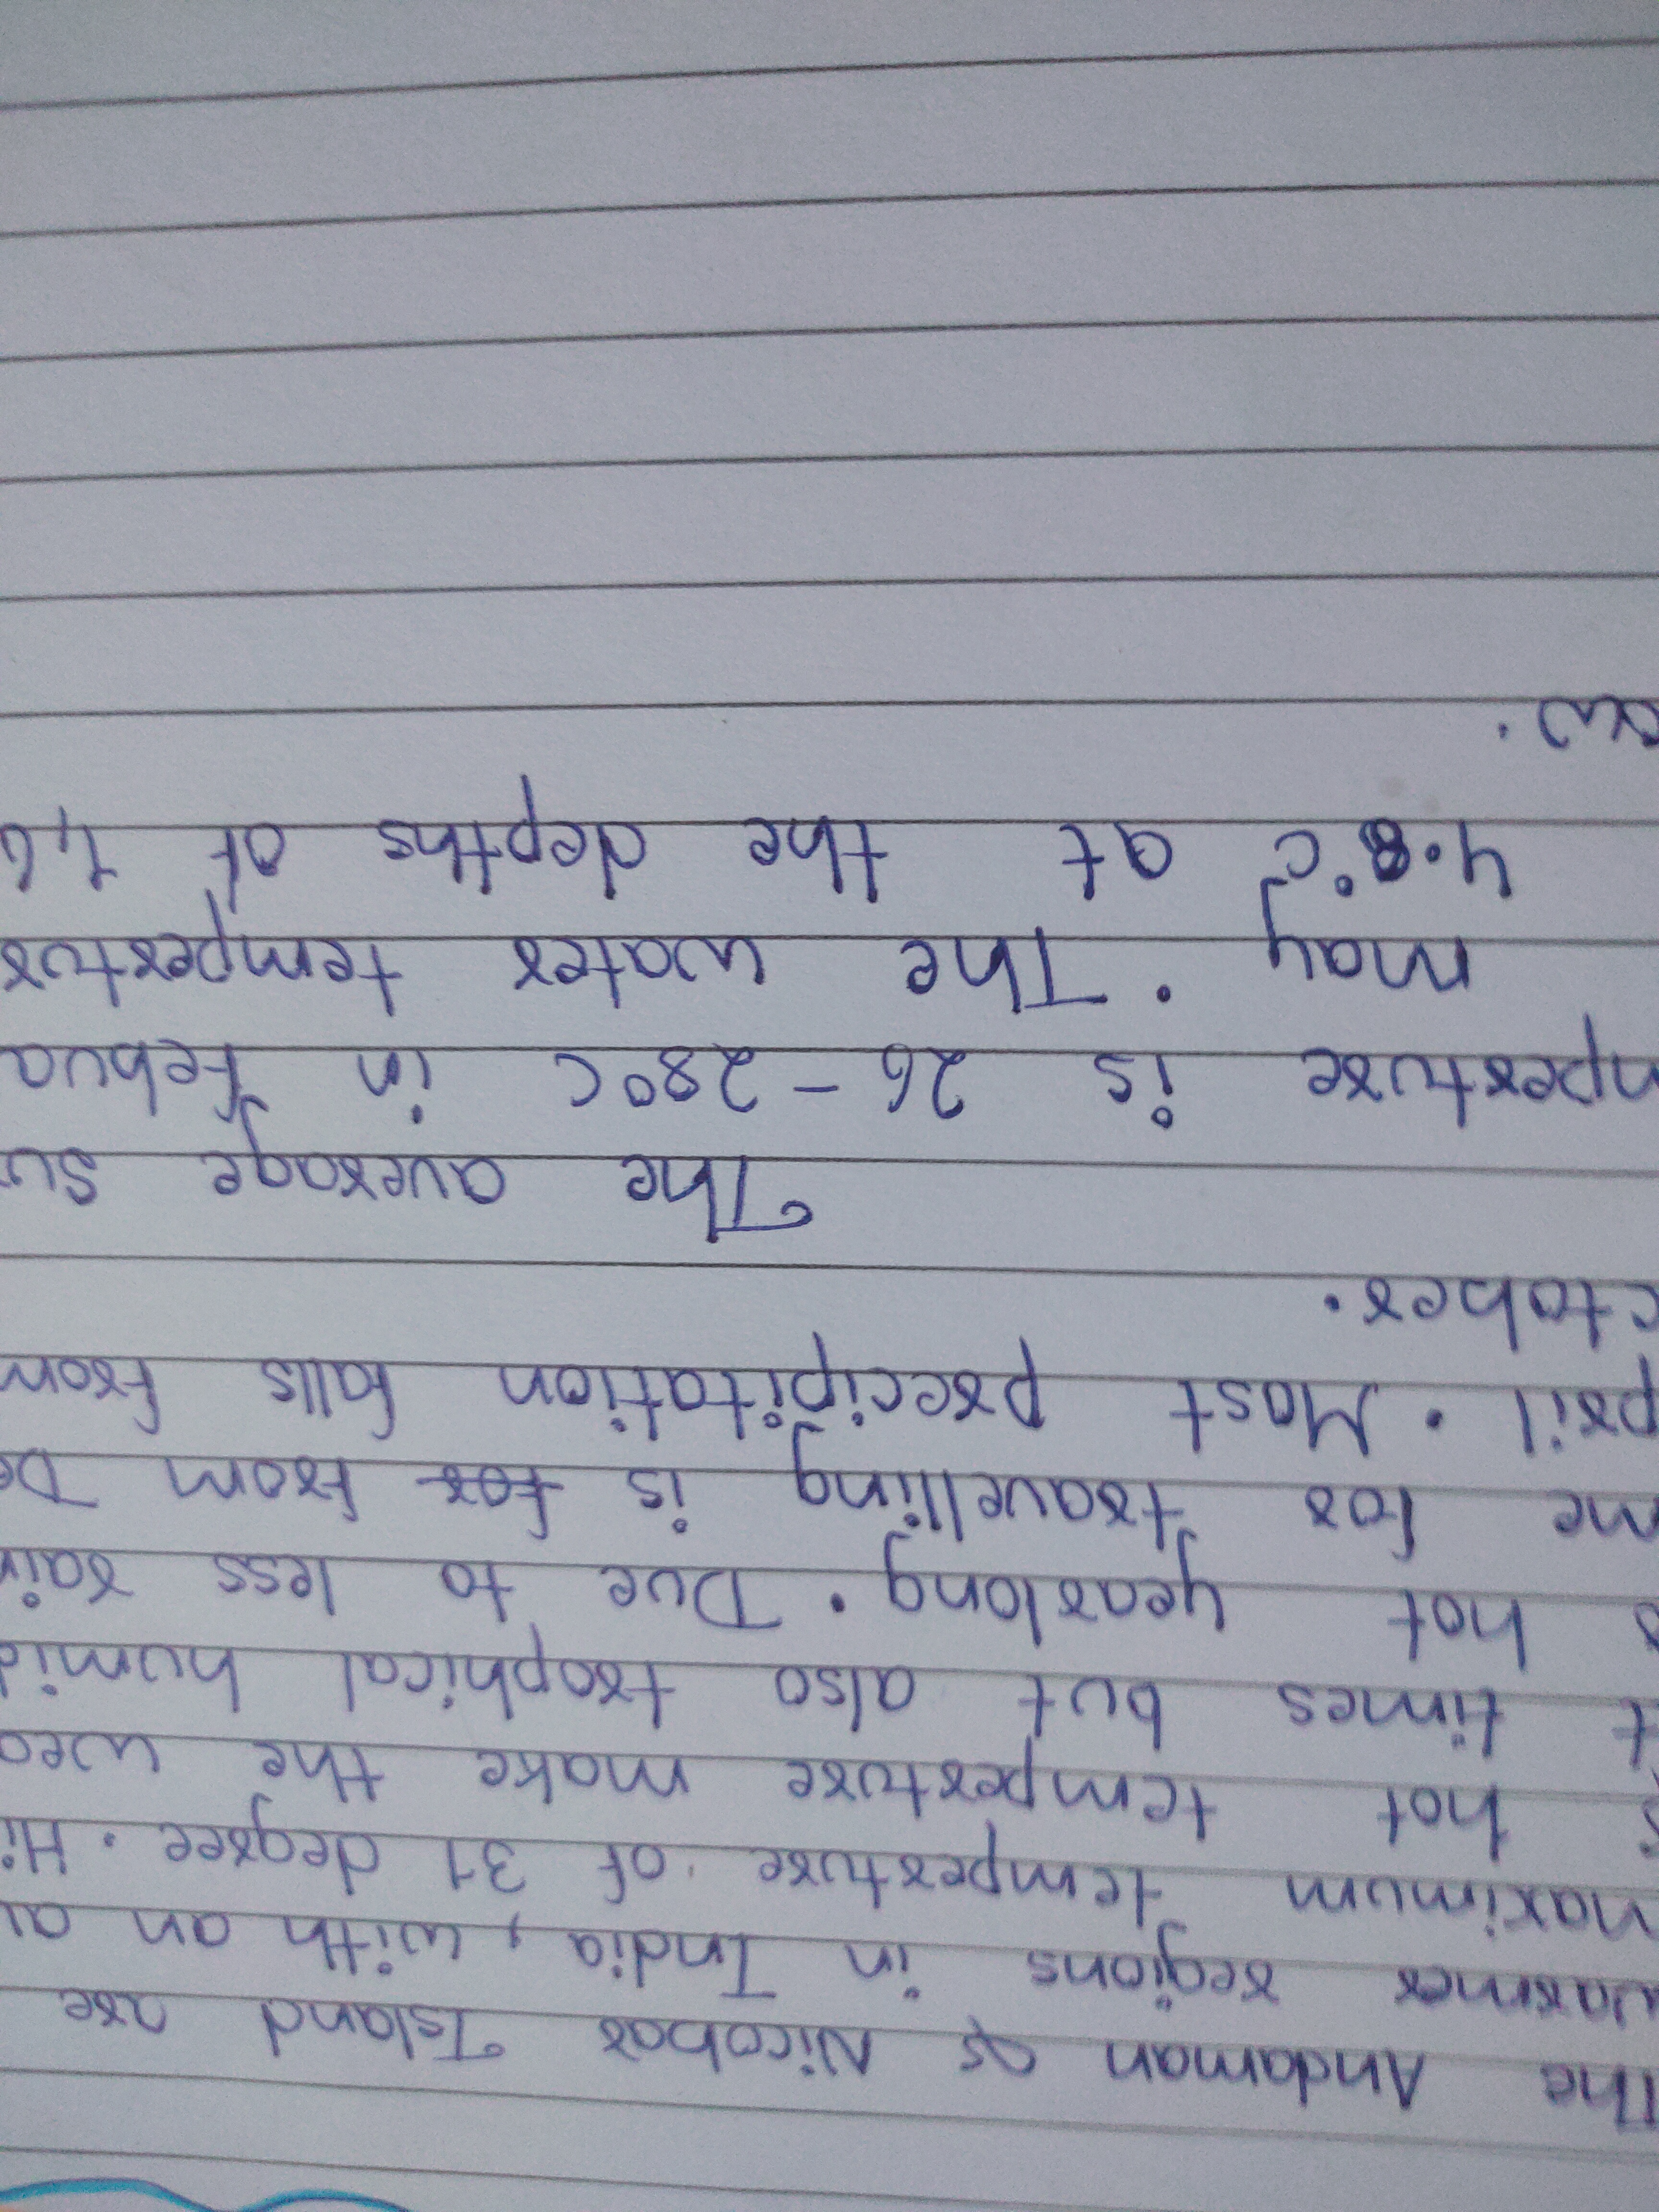 The Andaman & Nicobar Island are
warmer regions in India, with an av
maximum temperture of 31 degree. Hi
& hot temperture make the wea
t times but also trophical humid
s hot yearlong. Due to less rain
me for travelling is for from De
pril. Most precipitation falls from
ctober.
The average su
mperture is 26-28°C in Febua
may. The water tempertur
4.8°C at the depths of 1,6